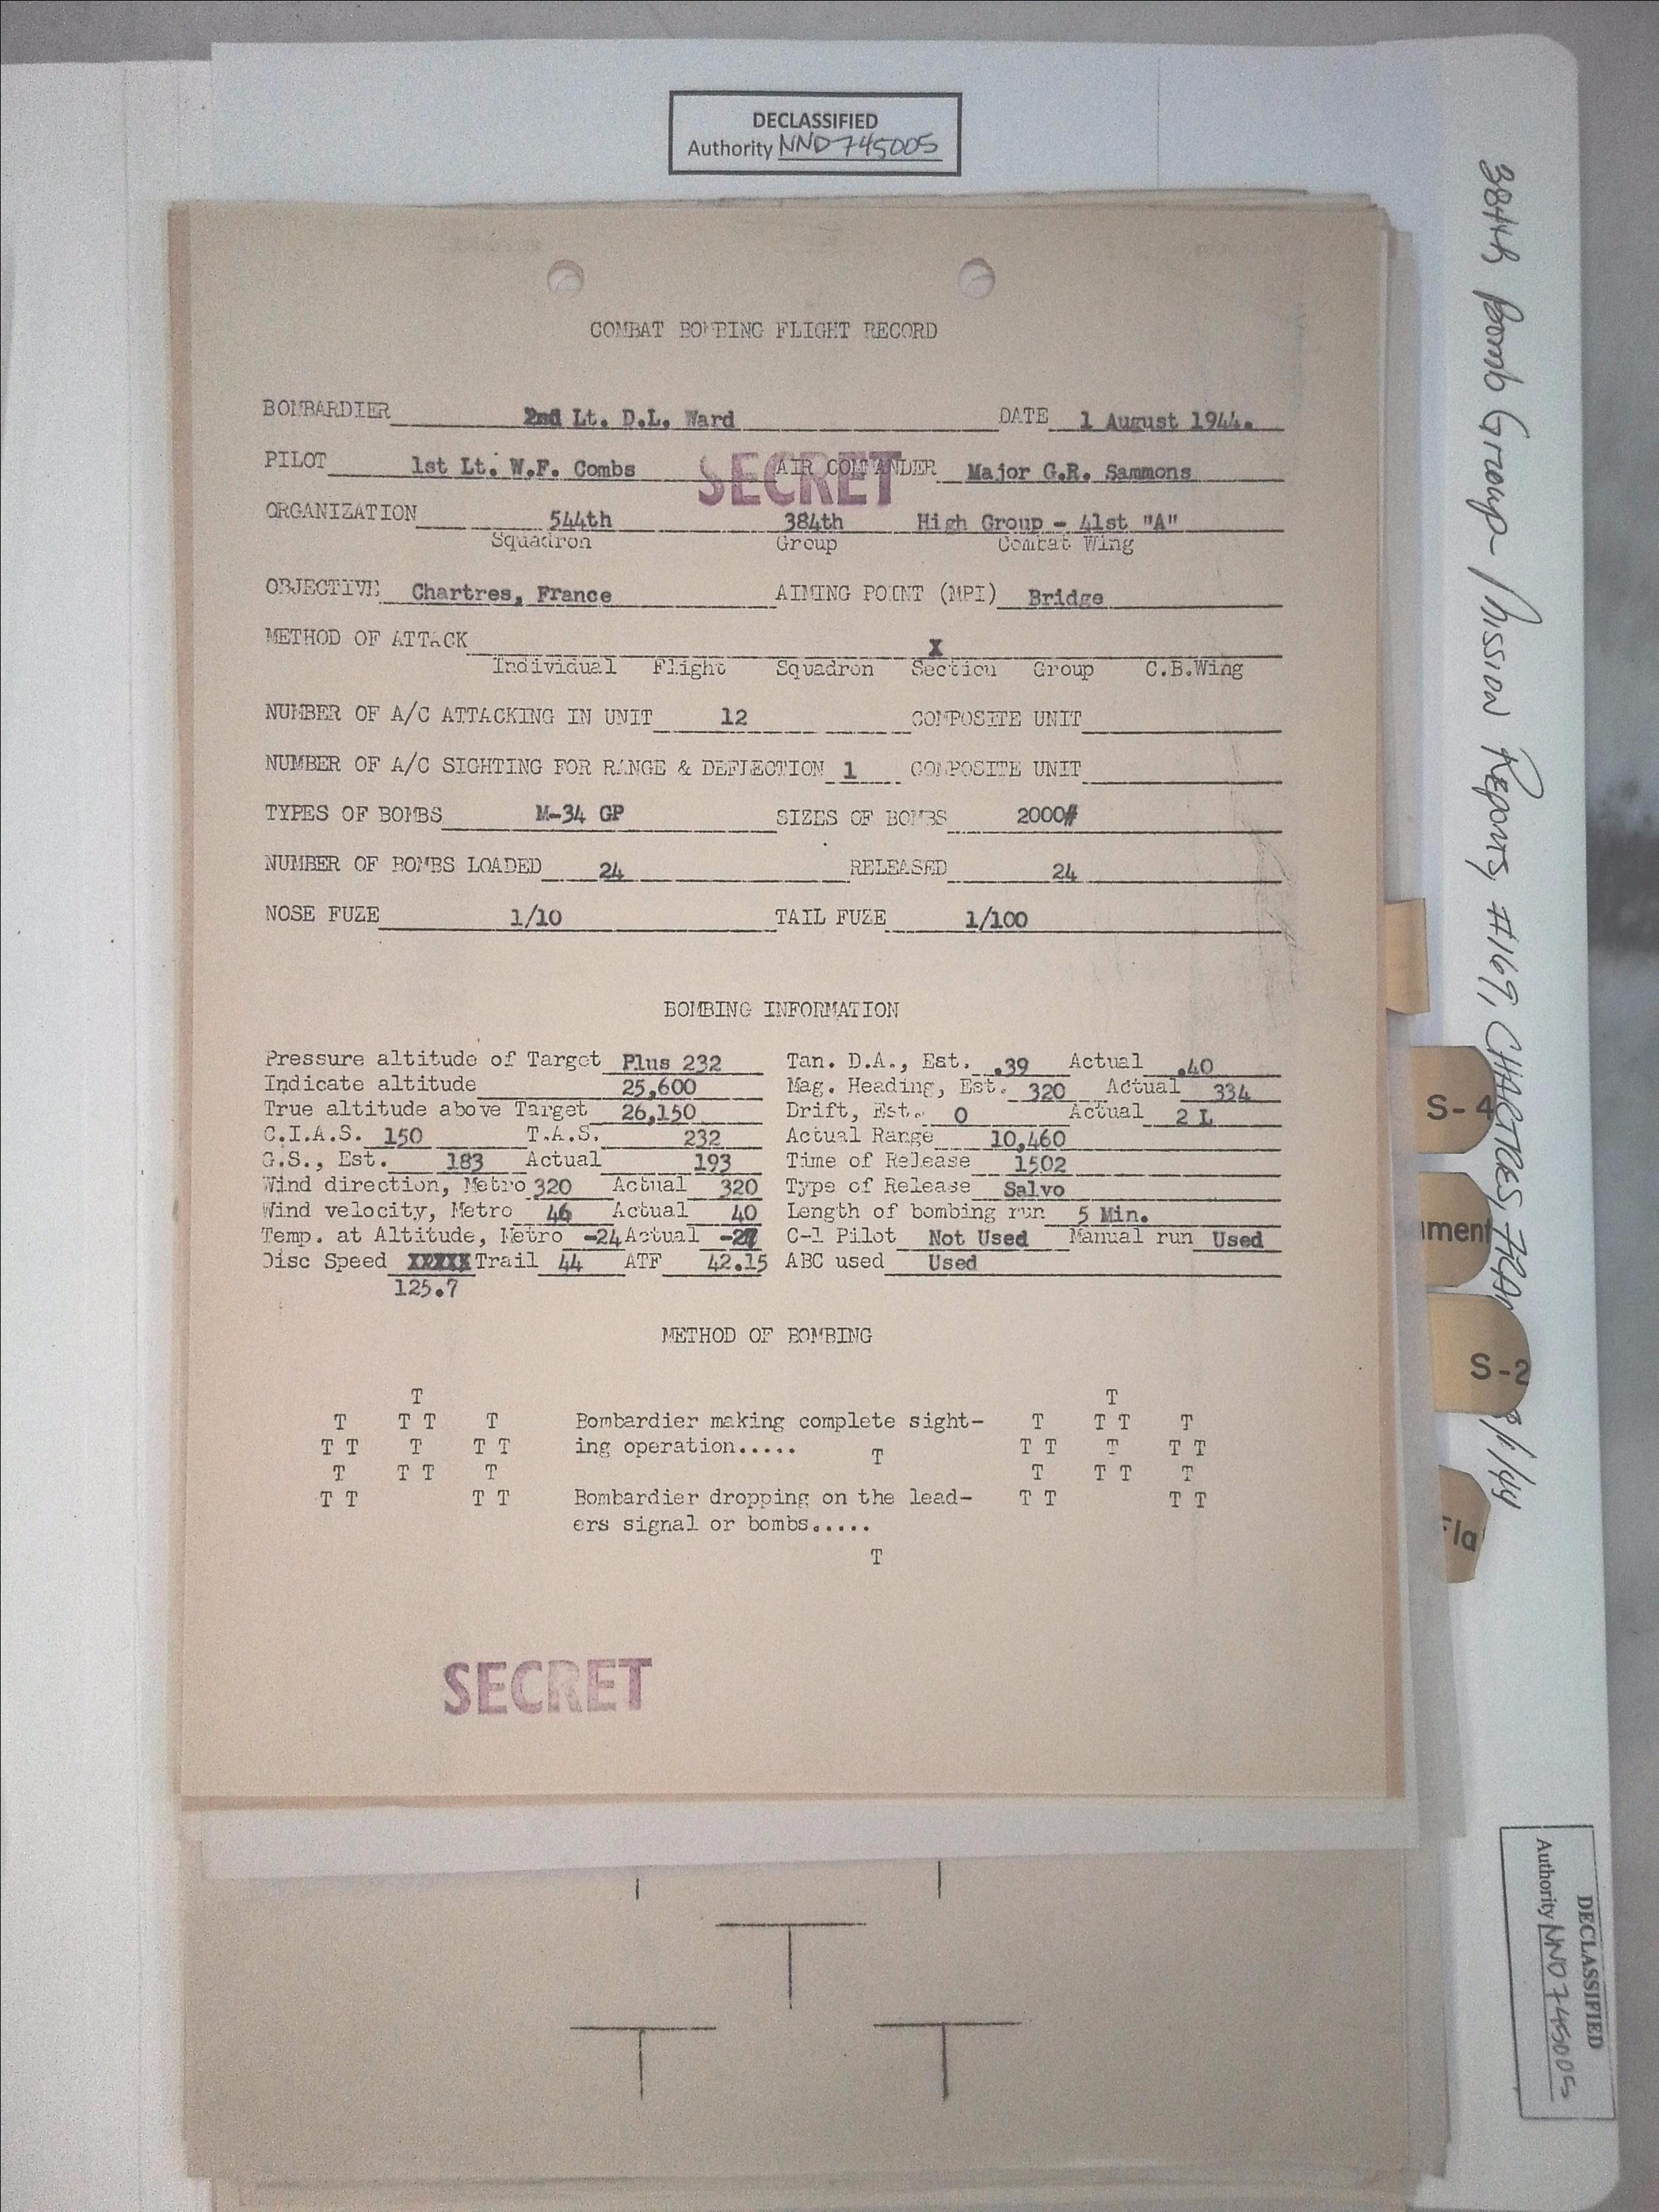 DECLASSIFIED
Authority NND745005
COMBAT BOMBING FLIGHT RECORD
BOMBARDIER 2nd Lt. D.L. Ward DATE 1 August 1944.
PILOT 1st Lt. W.F. Combs AIR COMMANDER Major G.R. Sammons
SECRET
ORGANIZATION 544th 384th High Group - 41st "A"
Squadron Group Combat Wing
OBJECTIVE Chartres, France AIMING POINT (MPI) Bridge
METHOD OF ATTACK X
Individual Flight Squadron Section Group C.B.Wing
NUMBER OF A/C ATTACKING IN UNIT 12 COMPOSITE UNIT
NUMBER OF A/C SIGHTING FOR RANGE & DEFLECTION 1 COMPOSITE UNIT
TYPES OF BOMBS M-34 GP SIZES OF BOMBS 2000#
NUMBER OF BOMBS LOADED 24 RELEASED 24
NOSE FUZE 1/10 TAIL FUZE 1/100
BOMBING INFORMATION
Pressure altitude of Target Plus 232 Tan. D.A., Est. .39 Actual .40
Indicate altitude 25,600 Mag. Heading, Est. 320 Actual 334
True altitude above Target 26,150 Drift, Est. 0 Actual 2 L
C.I.A.S. 150 T.A.S. 232 Actual Range 10,460
G.S., Est. 183 Actual 193 Time of Release 1502
Wind direction, Metro 320 Actual 320 Type of Release Salvo
Wind velocity, Metro 46 Actual 40 Length of bombing run 5 Min.
Temp. at Altitude, Metro -24 Actual -27 C-1 Pilot Not Used Manual run Used
Disc Speed XXXXX Trail 44 ATF 42.15 ABC used Used
125.7
METHOD OF BOMBING
T T
T T T T Bombardier making complete sight- T T T T
T T T T T ing operation..... T T T T T T
T T T T T T T T
T T T T Bombardier dropping on the lead- T T T T
ers signal or bombs.....
T
SECRET
384th Bomb Group - Mission Reports #169, CHARTRES, FRA
8/1/44
S-4
S-2
Fla
DECLASSIFIED
Authority NND745005